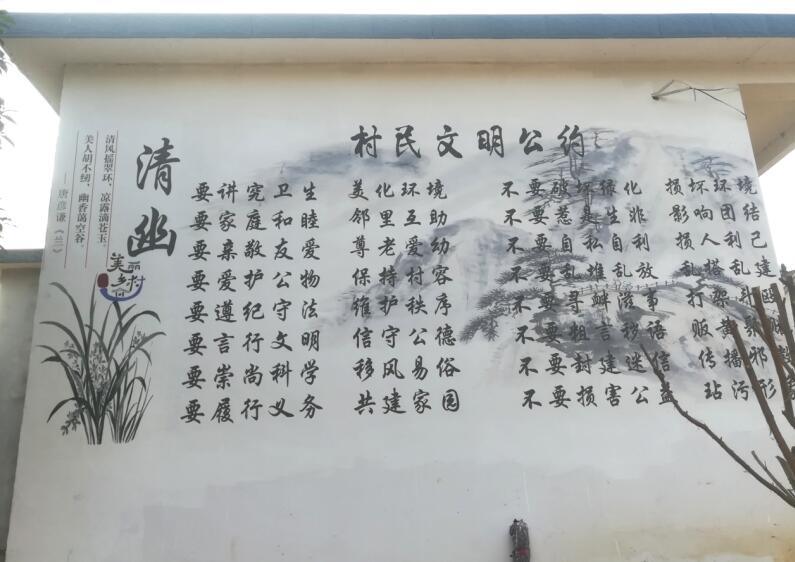 村民文明公约
清幽
清风摇翠环，凉露滴苍玉。
美人胡不纫，幽香蔼空谷。
——唐彦谦《兰》
美丽乡村
要讲究卫生 美化环境
要家庭和睦 邻里互助
要亲敬友爱 尊老爱幼
要爱护公物 保持村容
要遵纪守法 维护秩序
要言行文明 信守公德
要崇尚科学 移风易俗
要履行义务 共建家园
不要破坏绿化 损坏环境
不要惹是生非 影响团结
不要自私自利 损人利己
不要乱堆乱放 乱搭乱建
不要寻衅滋事 打架斗殴
不要粗言秽语 贩黄
不要封建迷信 传播邪
不要损害公益 玷污形